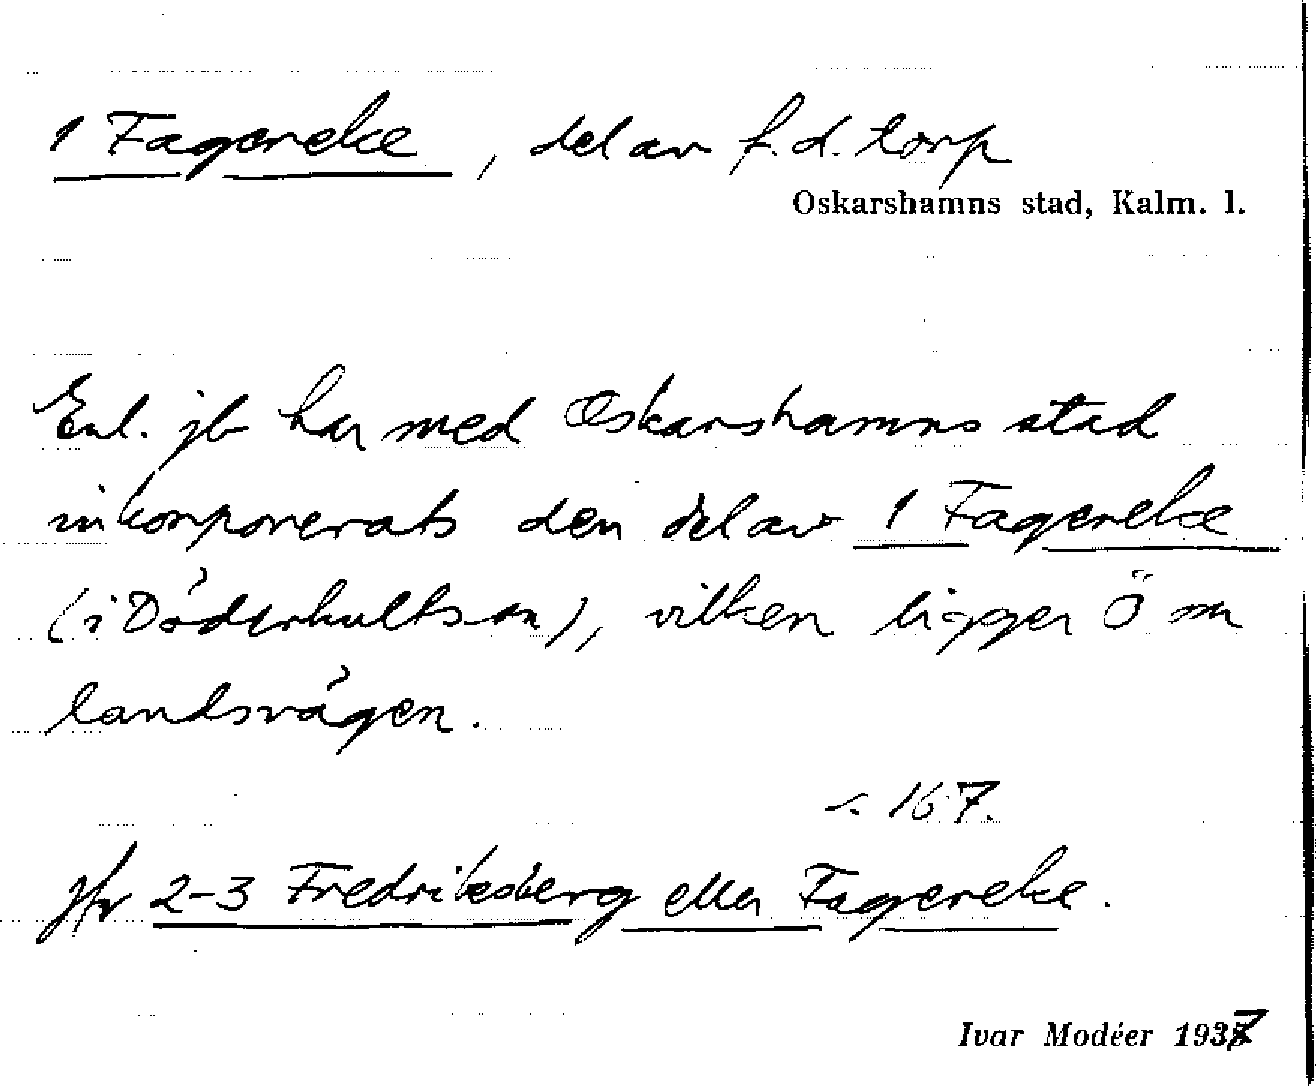 1 Fagereke, del av f.d. torp
Oskarshamns stad, Kalm. l.
Enl. jb har med Oskarshamns stad
inkorporerats den del av 1 Fagereke
(i Döderhults sn), vilken ligger Ö om
landsvägen.
s. 167.
Jfr 2-3 Fredriksberg eller Fagereke.
Ivar Modéer 1937